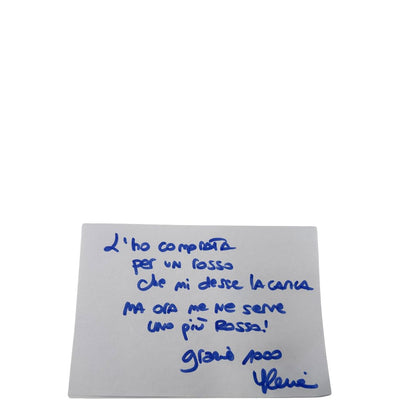 L'ho comprata
per un rosso
che mi desse la carica
ma ora me ne serve
uno più rosso!
grazie 1000